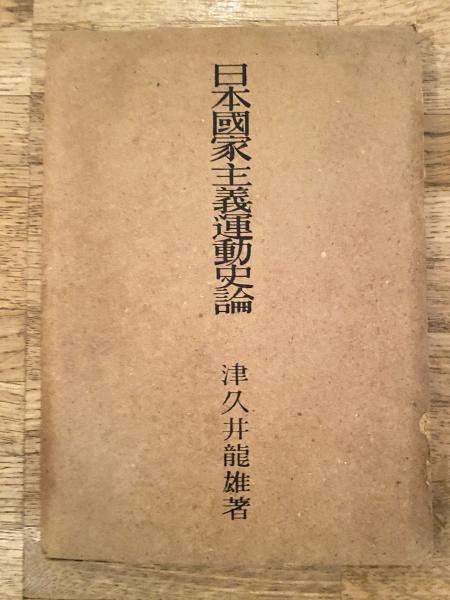 日本國家主義運動史論
津久井龍雄著